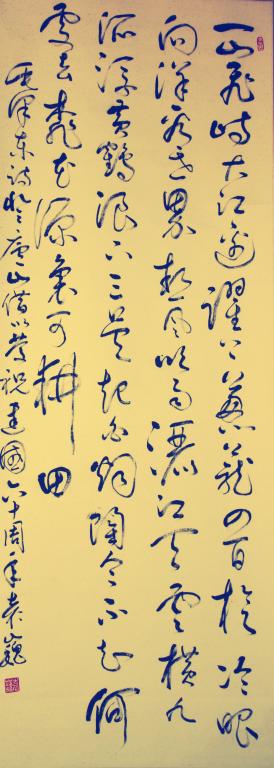 一山飛峙大江邊躍上蔥蘢四百旋冷眼
向洋看世界熱風吹雨灑江天雲橫九
派浮黃鶴浪下三吳起白烟陶令不知何
處去桃花源裏可耕田
毛澤東詩登廬山借以慶祝建國六十周年袁巍